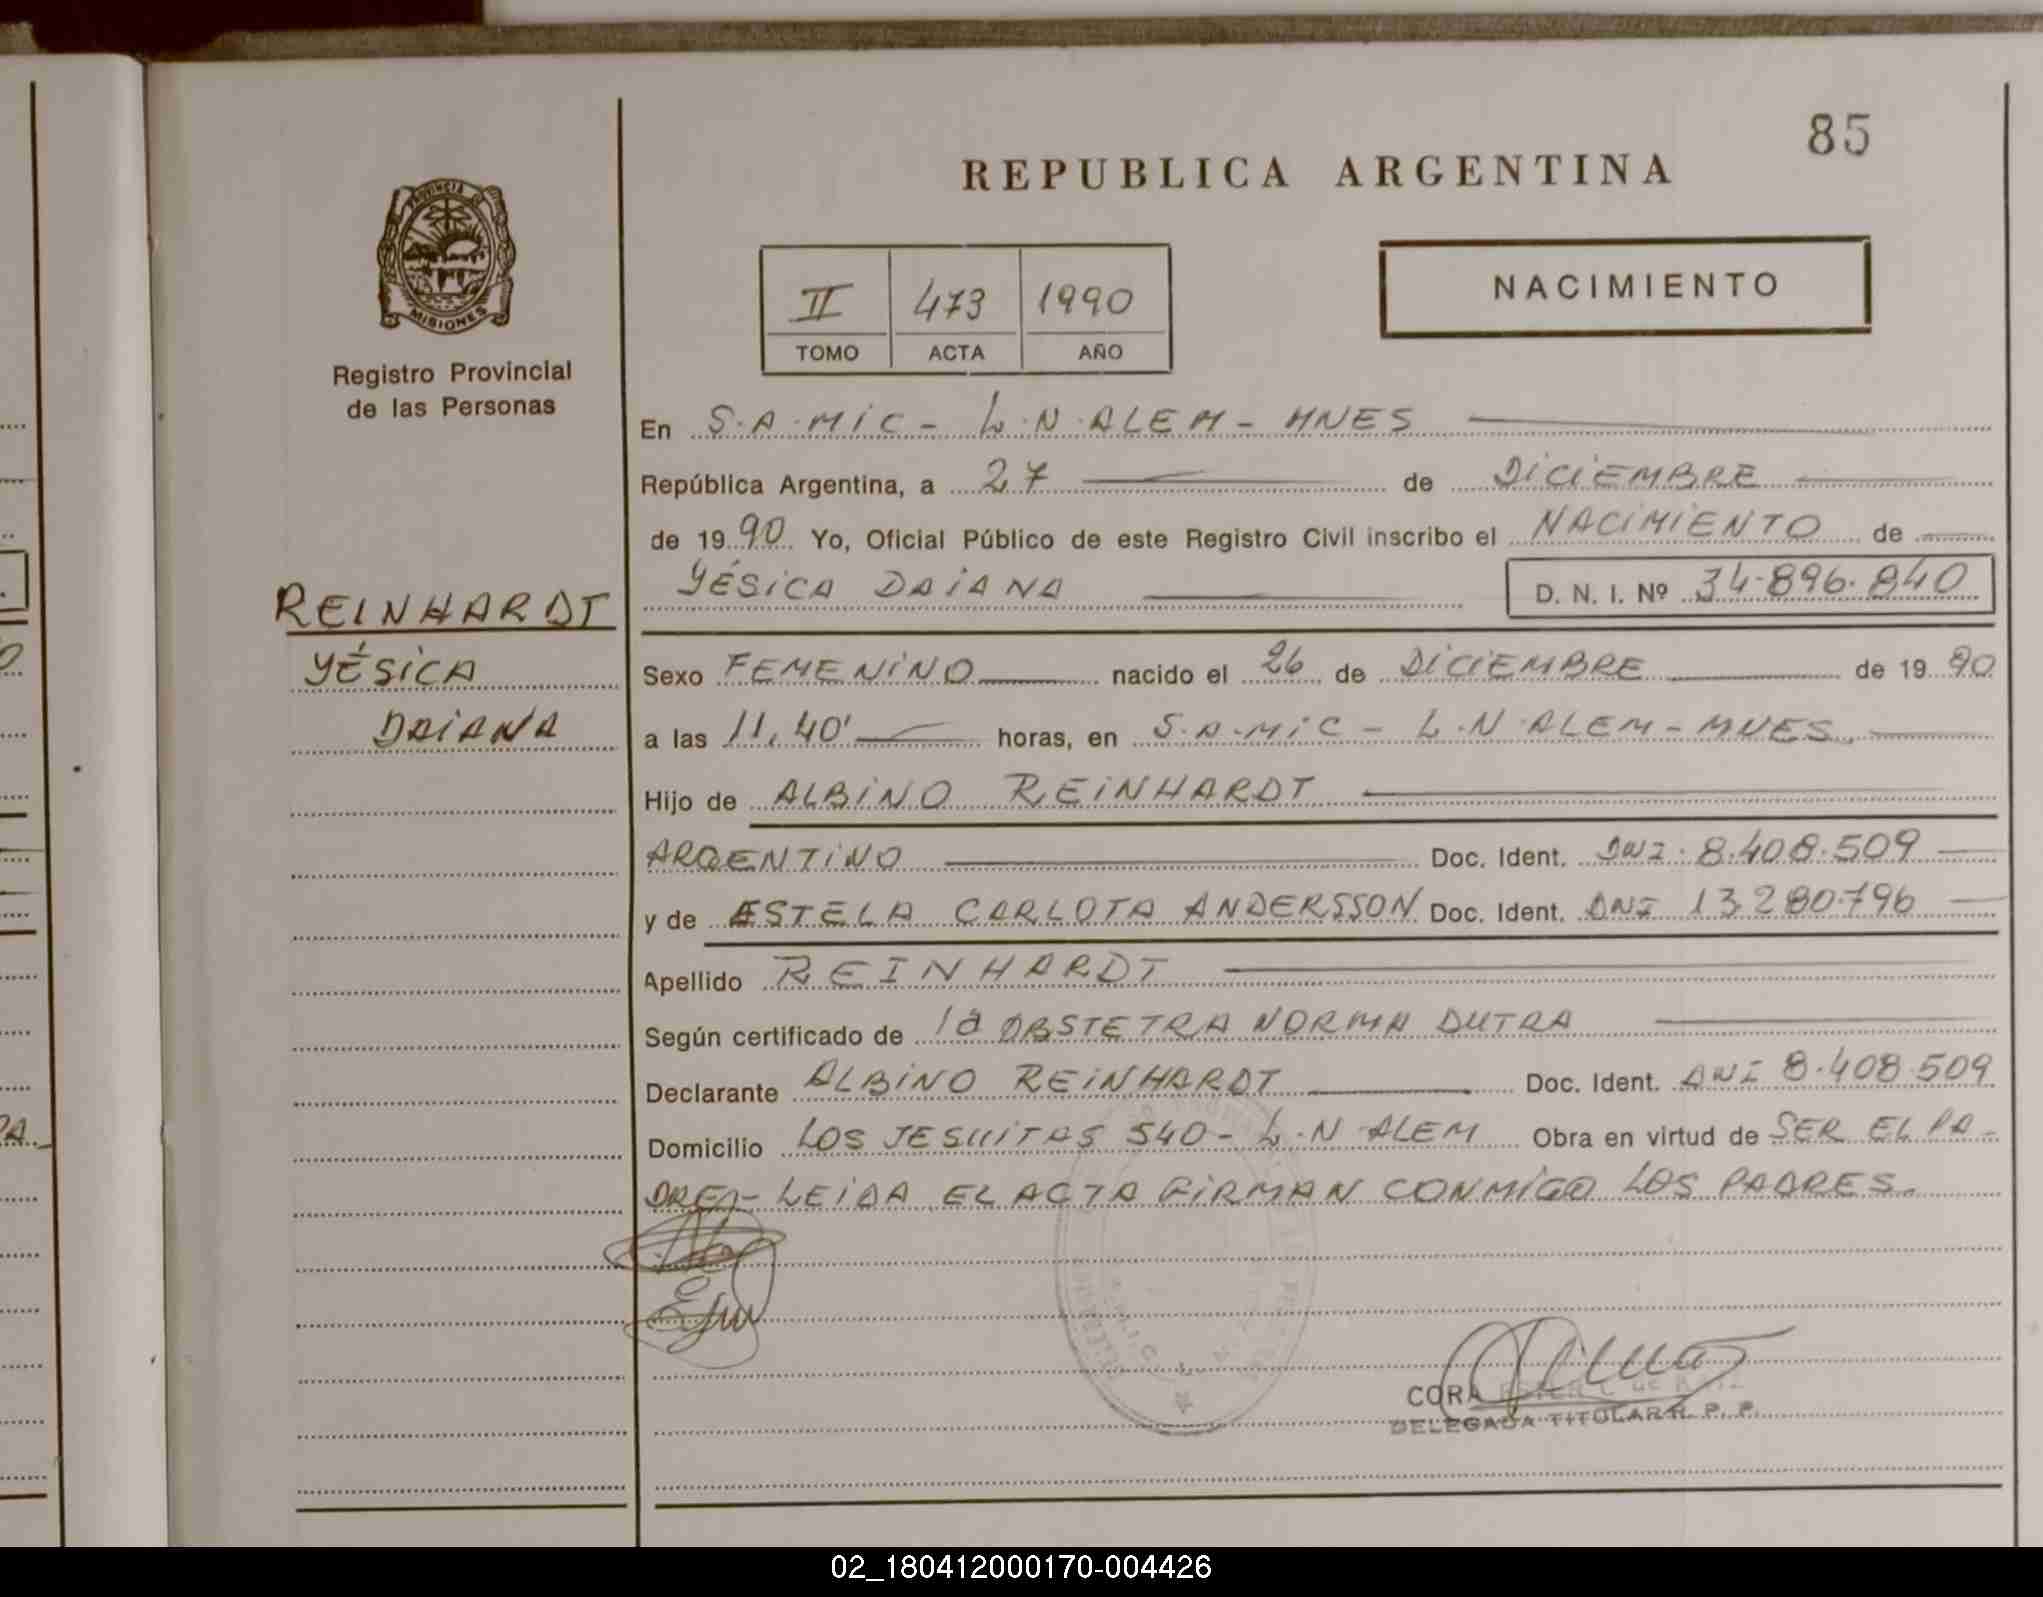 85
REPUBLICA ARGENTINA
PROVINCIA DE
MISIONES
Registro Provincial
de las Personas
II 473 1990
TOMO ACTA AÑO
NACIMIENTO
En S.A.MIC - L.N.ALEM - MNES
República Argentina, a 27 de DICIEMBRE
de 1990 Yo, Oficial Público de este Registro Civil inscribo el NACIMIENTO de
YÉSICA DAIANA D. N. I. Nº 34.896.840
REINHARDT
YÉSICA
DAIANA
Sexo FEMENINO nacido el 26 de DICIEMBRE de 1990
a las 11,40' horas, en S.A.MIC - L.N ALEM - MNES.
Hijo de ALBINO REINHARDT
ARGENTINO Doc. Ident. DNI. 8.408.509
y de ESTELA CARLOTA ANDERSSON Doc. Ident. DNI 13.280.796
Apellido REINHARDT
Según certificado de la OBSTETRA NORMA DUTRA
Declarante ALBINO REINHARDT Doc. Ident. DNI 8.408.509
Domicilio LOS JESUITAS 540 - L.N ALEM Obra en virtud de SER EL PA-
DRE.- LEIDA EL ACTA FIRMAN CONMIGO LOS PADRES.
CORA
DELEGADA TITULAR R. P. P.
02_180412000170-004426